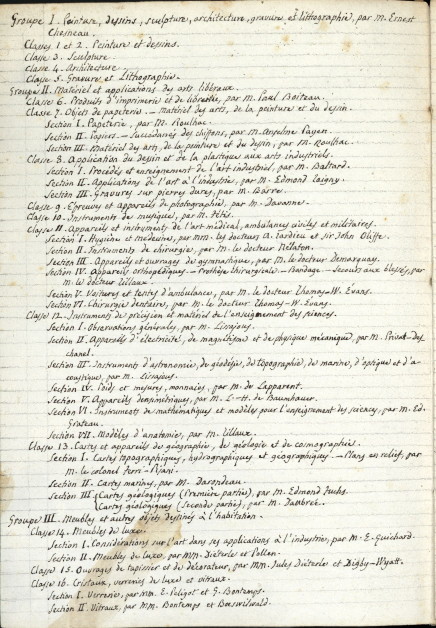 Groupe I. Peinture, dessins, sculpture, architecture, gravure, et lithographie, par M. Ernest
Chesneau.
Classes 1 et 2. Peinture et dessins.
Classe 3. Sculpture.
Classe 4. Architecture.
Classe 5. Gravure et Lithographie.
Groupe II. Matériel et applications des arts libéraux.
Classe 6. Produits d'imprimerie et de librairie, par M. Paul Boiteau.
Classe 7. Objets de papeterie. — Matériel des arts, de la peinture et du dessin.
Section I. Papeterie, par M. Roulhac.
Section II. Papiers. — Succédanés des chiffons, par M. Anselme Payen.
Section III. Matériel des arts, de la peinture et du dessin, par M. Roulhac.
Classe 8. Application du dessin et de la plastique aux arts industriels.
Section I. Procédés et enseignement de l'art industriel, par M. Baltard.
Section II. Applications de l'art à l'industrie, par M. Edmond Taigny.
Section III. Gravures sur pierres dures, par M. Barre.
Classe 9. Epreuves et Appareils de photographie, par M. Davanne.
Classe 10. Instruments de musique, par M. Fétis.
Classe 11. Appareils et instruments de l'art médical, ambulances civiles et militaires.
Section I. Hygiène et médecine, par MM. les docteurs A. Tardieu et Sir John Oliffe.
Section II. Instruments de chirurgie, par M. le docteur Nélaton.
Section III. Appareils et ouvrages de gymnastique, par M. le docteur Demarquay.
Section IV. Appareils orthopédiques. — Prothèse chirurgicale. — Bandage. — Secours aux blessés, par
M. le docteur Tillaux.
Section V. Voitures et tentes d'ambulance, par M. le docteur Thomas-W. Evans.
Section VI. Chirurgie dentaire, par M. le docteur Thomas-W. Evans.
Classe 12. Instruments de précision et matériel de l'enseignement des sciences.
Section I. Observations générales, par M. Lissajous.
Section II. Appareils d'électricité, de magnétisme et de physique mécanique, par M. Privat-Des
chanel.
Section III. Instruments d'astronomie, de géodésie, de topographie, de marine, d'optique et d'a-
coustique, par M. Lissajous.
Section IV. Poids et mesures, monnaies, par M. de Lapparent.
Section V. Appareils densimétriques, par M. L.-H. de Baumhauer.
Section VI. Instruments de mathématiques et modèles pour l'enseignement des sciences, par M. Ed.
Grateau.
Section VII. Modèles d'anatomie, par M. Tillaux.
Classe 13. Cartes et appareils de géographie, de géologie et de cosmographie.
Section I. Cartes topographiques, hydrographiques et géographiques. — Plans en relief, par
M. le colonel Ferri-Pisani.
Section II. Cartes marines, par M. Darondeau.
Section III {Cartes géologiques (Première partie), par M. Edmond Fuchs.
Cartes géologiques (Seconde partie), par M. Daubrée.
Groupe III. Meubles et autres objets destinés à l'habitation.
Classe 14. Meubles de luxe.
Section I. Considérations sur l'art dans ses applications à l'industrie, par M. E. Guichard.
Section II. Meubles de luxe, par MM. Dieterle et Pollen.
Classe 15. Ouvrages de tapissier et de décorateur, par MM. Jules Dieterle et Digby-Wyatt.
Classe 16. Cristaux, verreries de luxe et vitraux.
Section I. Verrerie, par MM. E. Péligot et G. Bontemps.
Section II. Vitraux, par MM. Bontemps et Boeswilwald.